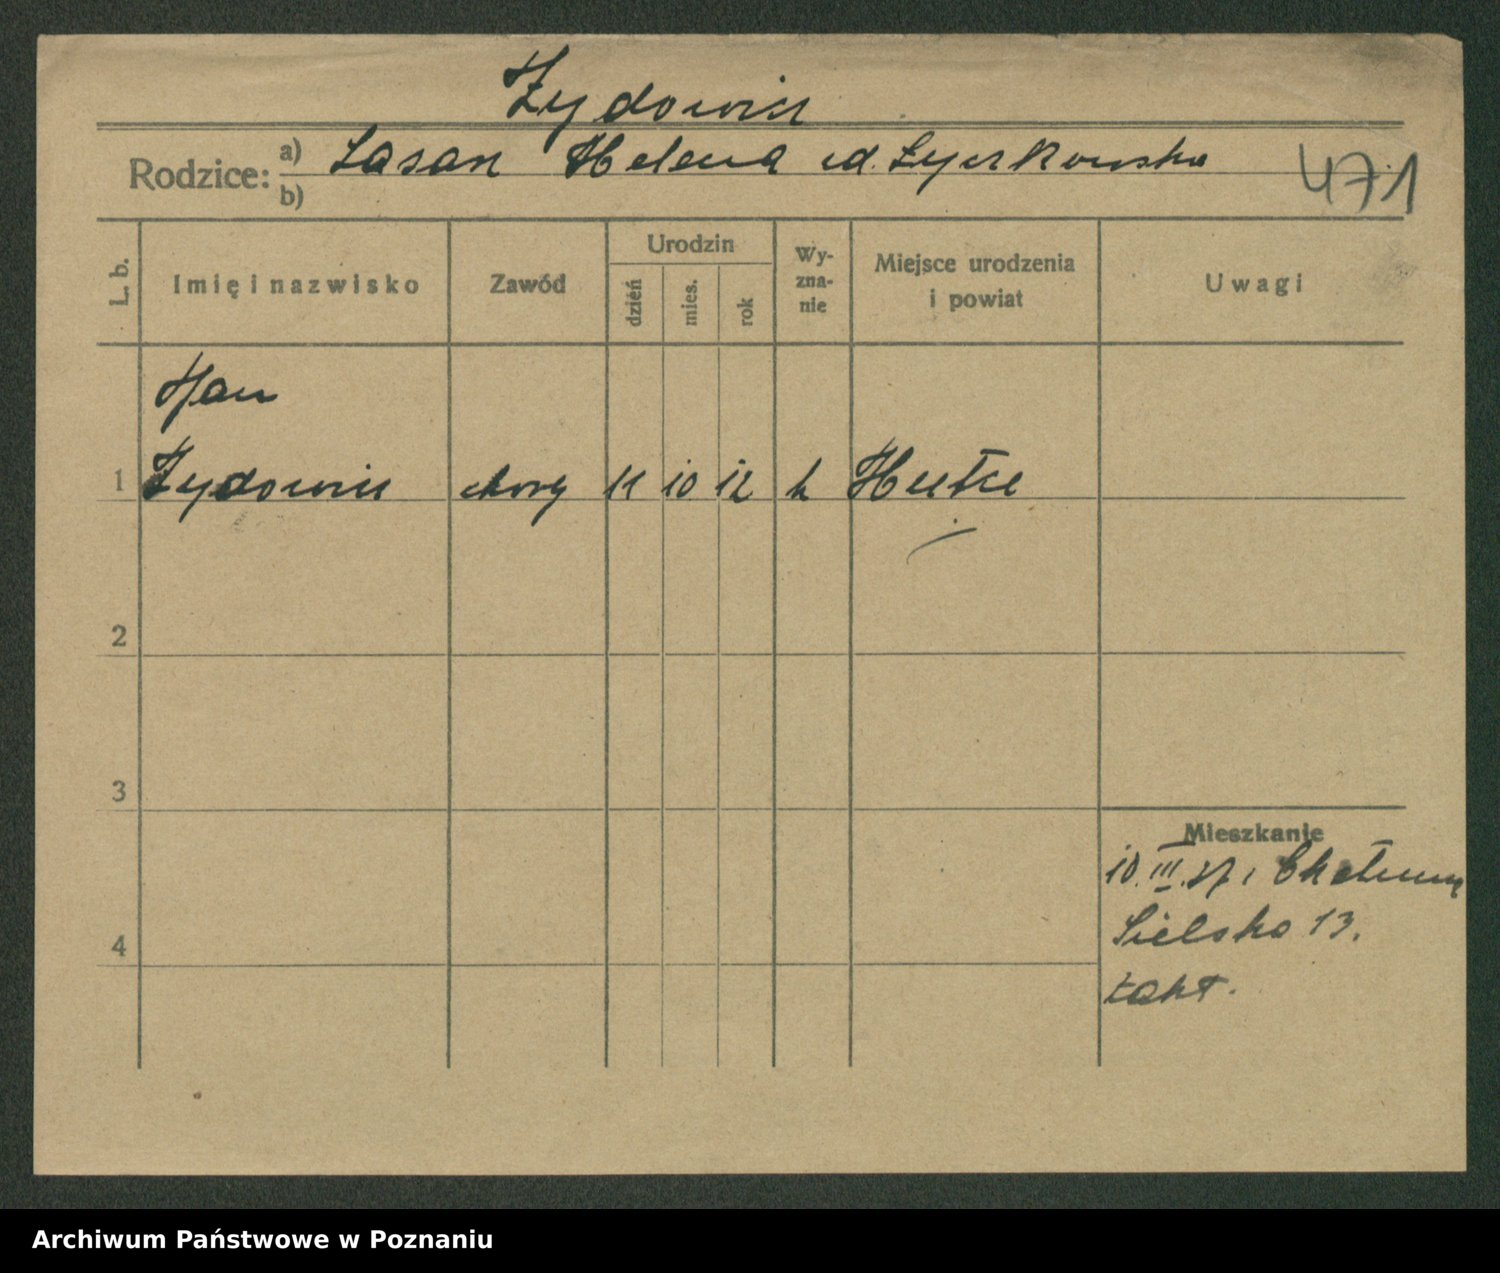 Żydowicz
Rodzice: a) Łazarz Helena zd. Łyczkowska
b)
471
L. b. Imię i nazwisko Zawód Urodzin dzień mies. rok Wyznanie Miejsce urodzenia i powiat Uwagi
Jan
1 Żydowicz chory 11 10 12 k
2
3
Mieszkanie
10. III. 37. Chełmży
Sielska 13.
4
Archiwum Państwowe w Poznaniu